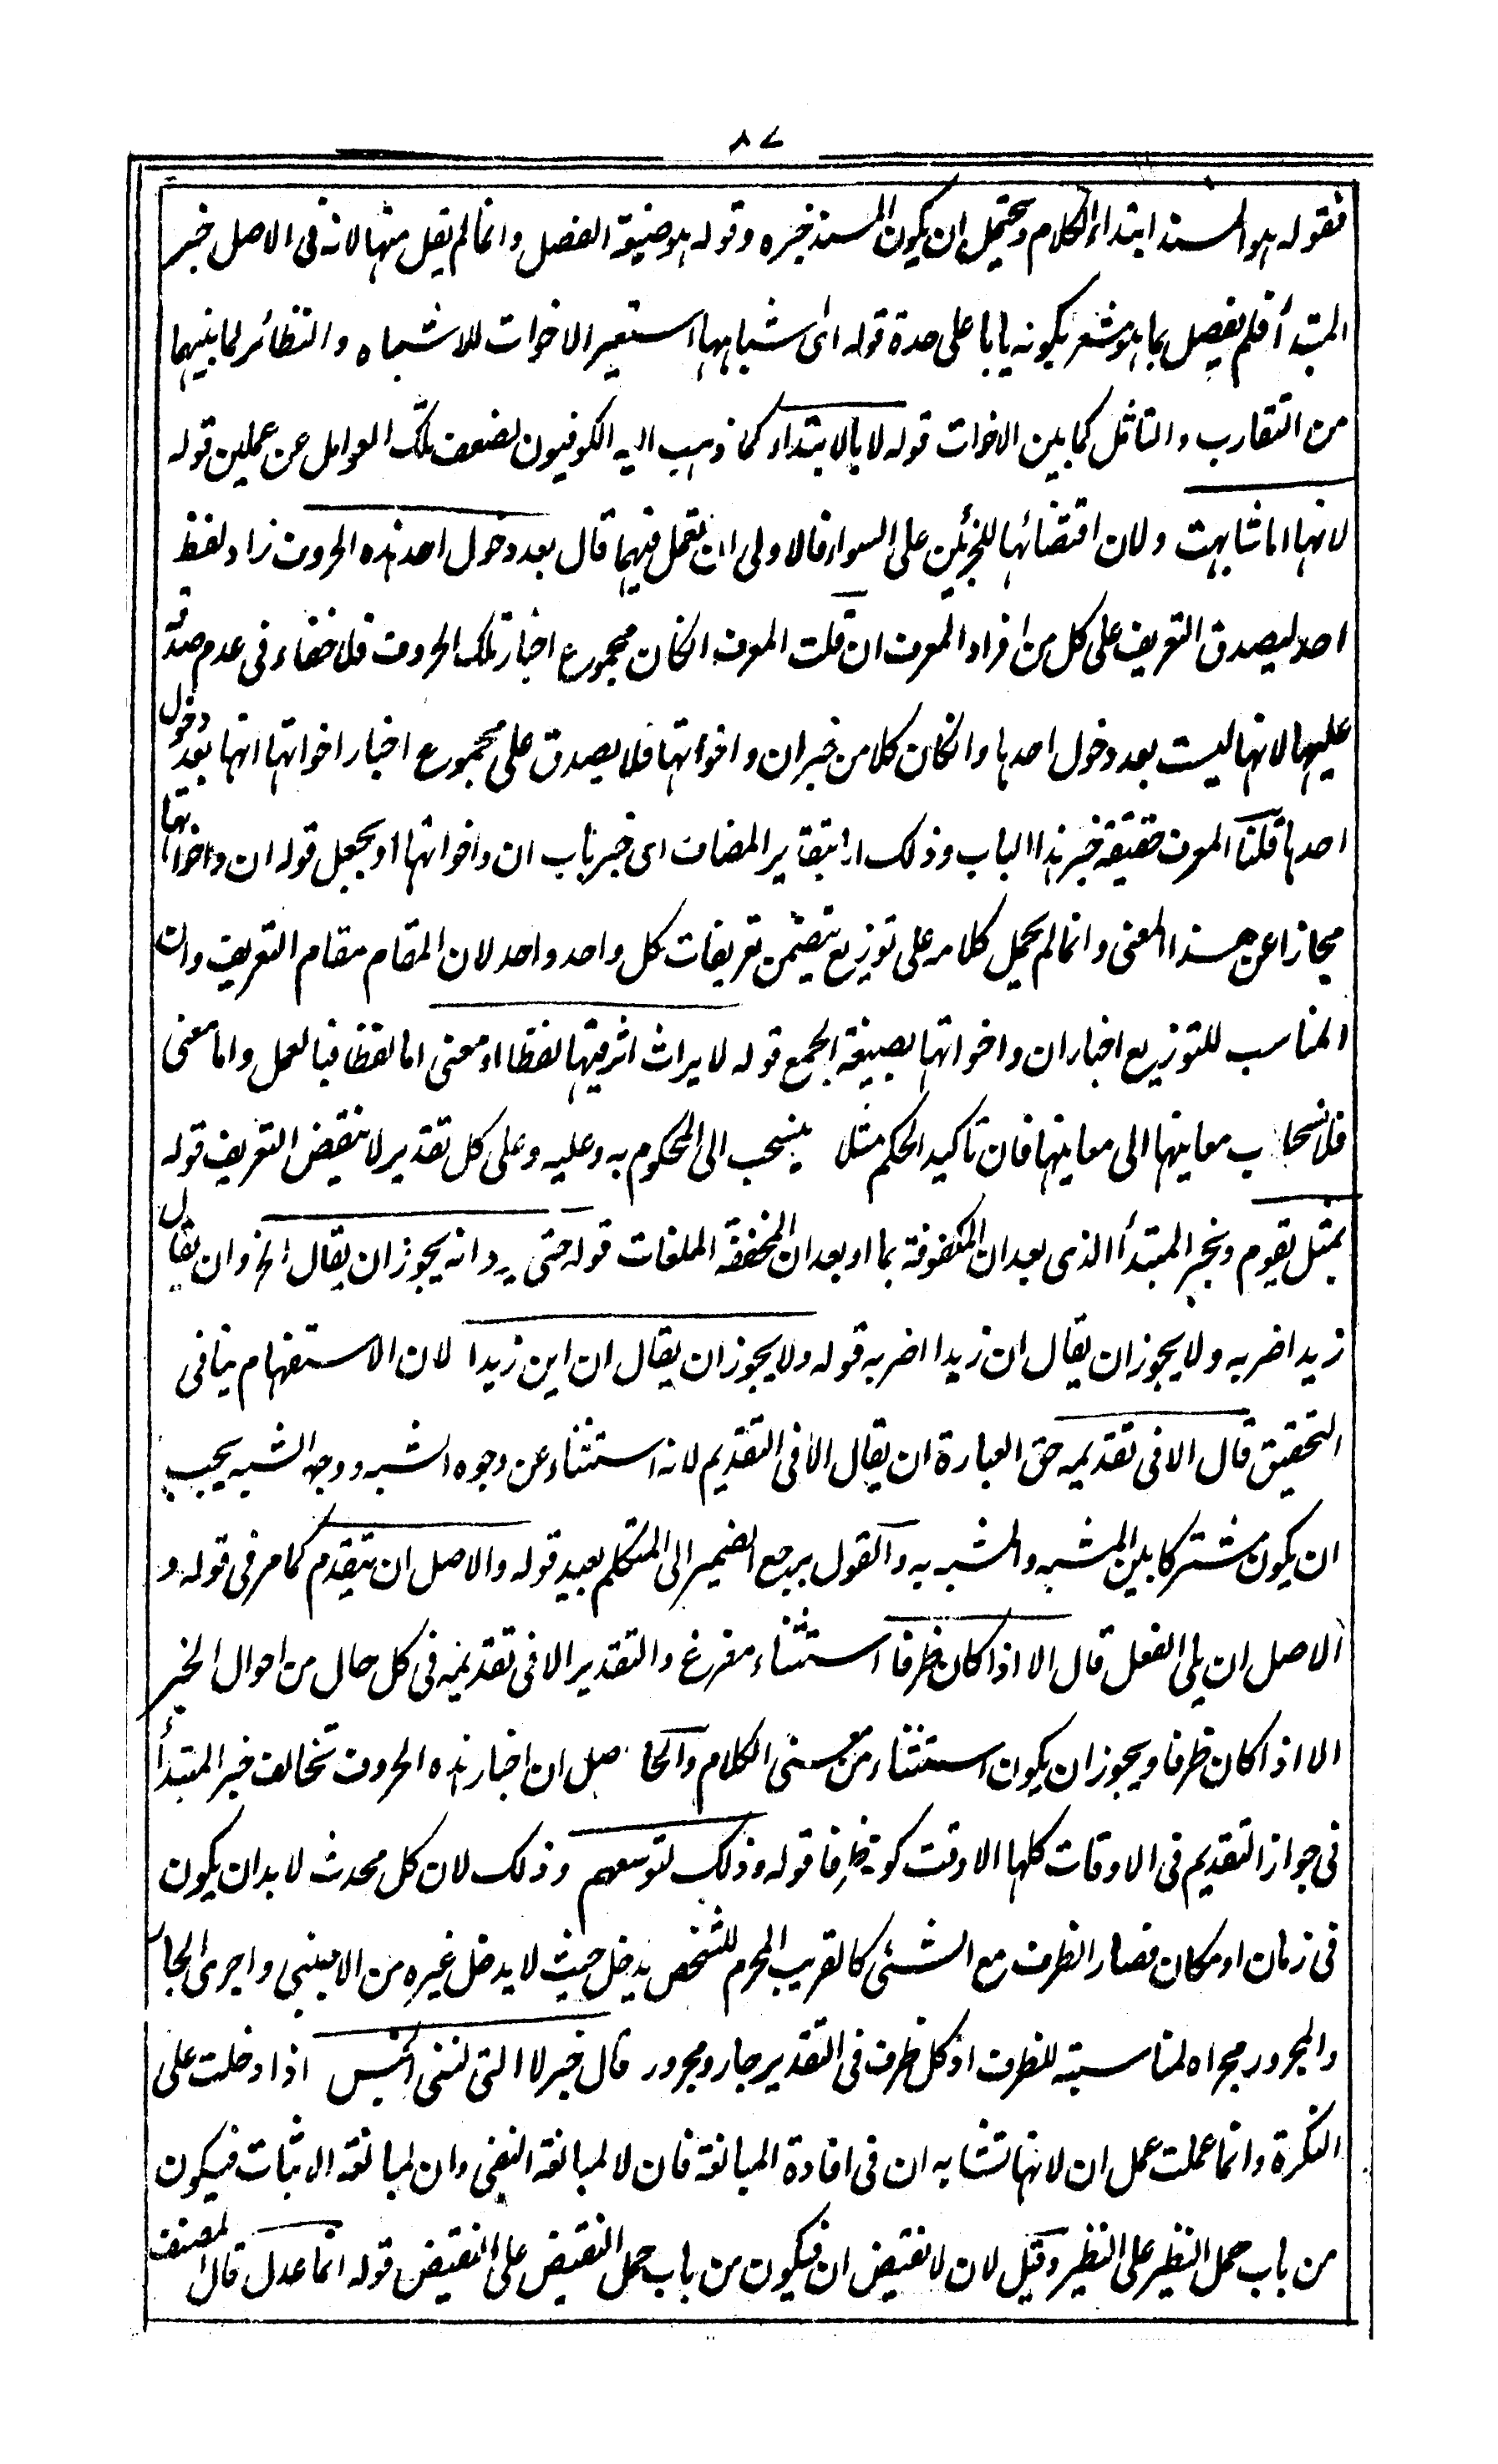 ٨٧
فقوله هو المسند ابتداء الكلام ويحتمل ان يكون المسند خبره وقوله هو ضيغة الفصل وانما لم يقل منها لانه فى الاصل خبر
المبتدأ فلم يفصل بما هو مشعر بكونه بابا على حدة قوله اى شباهها استعير الاخوات للاشباه والنظائر لما بينهما
من التقارب والتماثل كما بين الاخوات قوله لا بالابتداء كما ذهب اليه الكوفيون لضعف تلك العوامل عن عملين قوله
لانها لما شابهت ولان اقتضائها للجزئين على السواء فالاولى ان تعمل فيهما قال بعد دخول احد هذه الحروف زاد لفظ
احد ليصدق التعريف على كل من افراد المعرف ان قلت المعرف انكان مجموع اخبار تلك الحروف فلا خفاء فى عدم صدقه
عليها لانها ليست بعد دخول احدها وانكان كلا من خبر ان واخواتها فلا يصدق على مجموع اخبار اخواتها انها بعد دخول
احدها قلنا المعرف حقيقة خبر هذا الباب وذلك اما بتقدير المضاف اى خبر باب ان واخواتها او بجعل قوله ان واخواتها
مجازا عن هذا المعنى وانما لم يحمل كلامه على توزيع يتضمن تعريفات كل واحد واحد لان المقام مقام التعريف وان
المناسب للتوزيع اخبار ان واخواتها بصيغة الجمع قوله لايراث اثر فيها لفظا او معنى اما لفظا فبالعمل واما معنى
فلانسحاب معانيها الى معانيها فان تاكيد الحكم مثلا ينسحب الى المحكوم به وعليه وعلى كل تقدير لا ينتقض التعريف قوله
بمثل يقوم وبخبر المبتدأ الذى بعد ان المكفوفة بما او بعد ان المخففة الملغات قوله حتى يرد انه يجوز ان يقال الخ وان يقال
زيد اضربه ولا يجوز ان يقال ان زيدا اضربه قوله ولا يجوز ان يقال ان اين زيدا لان الاستفهام ينافى
التحقيق قال الا فى تقديمه حق العبارة ان يقال الا فى التقديم لانه استثناء عن وجوه الشبه ووجه الشبه يجب
ان يكون مشتركا بين المشبه والمشبه به والقول برجع الضمير الى المتكلم بعيد قوله والاصل ان يتقدم كما مر فى قوله و
الاصل ان يلى الفعل قال الا اذا كان ظرفا استثناء مفرغ والتقدير الا فى تقديمه فى كل حال من احوال الخبر
الا اذا كان ظرفا ويجوز ان يكون استثناء من معنى الكلام والحاصل ان اخبار هذه الحروف تخالف خبر المبتدأ
فى جواز التقديم فى الاوقات كلها الا وقت كونه ظرفا قوله وذلك لتوسعهم وذلك لان كل محدث لابد ان يكون
فى زمان او مكان فصار الظرف مع الشئى كالقريب المحرم للشخص يدخل حيث لا يدخل غيره من الاجنبى واجرى الجار
والمجرور مجراه لمناسبته للظرف اذ كل ظرف فى التقدير جار ومجرور قال خبر لا التى لنفى الجنس اذا دخلت على
النكرة وانما عملت عمل ان لانها تشابه ان فى افادة المبالغة فان لا لمبالغة النفى وان لمبالغة الاثبات فيكون
من باب حمل النظير على النظير وقيل لان لا نقيض ان فيكون من باب حمل النقيض على النقيض قوله انما عدل قال المصنف